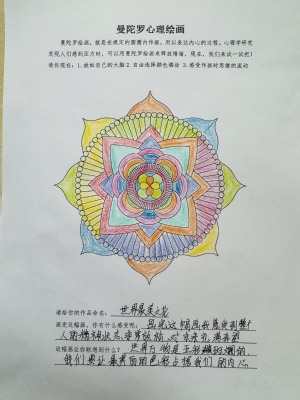 曼陀罗心理绘画
曼陀罗绘画，就是在规定的圆圈内作画，用以表达内心的过程。心理学研究
发现人们感到压力时，可以用曼陀罗绘画来释放情绪，现在，我们来试一试把！
请你现在：1.放松自己的大脑 2.自由选择颜色填涂 3.感受作画时思绪的流动
请给你的作品命名：世界最美之花
画完这幅画，你有什么感受呢：画完这幅画我感受到整个
人的精神状态非常放松，对未来充满希望
这幅画让你联想到什么？世界万物是五彩缤纷斑斓的，
我们要让最美丽的色彩占据我们的内心。